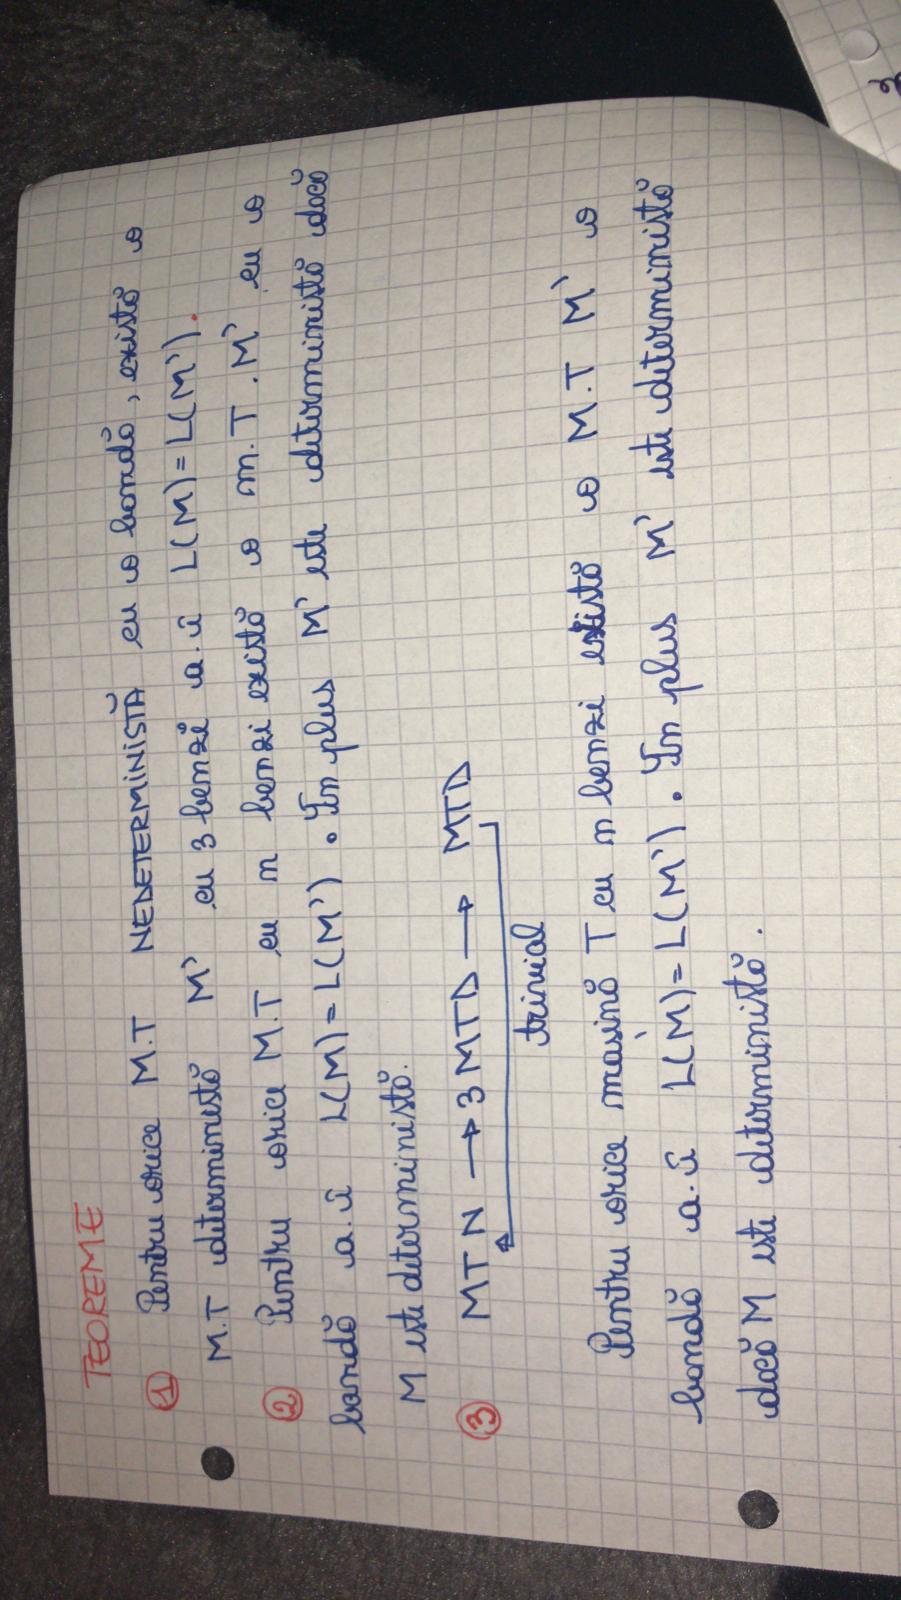 TEOREME
① Pentru orice M.T NEDETERMINISTĂ cu o bandă, există o
M.T deterministă M' cu 3 benzi a.î L(M)=L(M').
② Pentru orice M.T cu n benzi există o m.T.M' cu o
bandă a.î L(M)=L(M'). În plus M' este deterministă dacă
M este deterministă.
③ MTN → 3MTD → MTD
trivial
Pentru orice mașină T cu n benzi există o M.T M' o
bandă a.î L(M)=L(M'). În plus M' este deterministă
dacă M este deterministă.